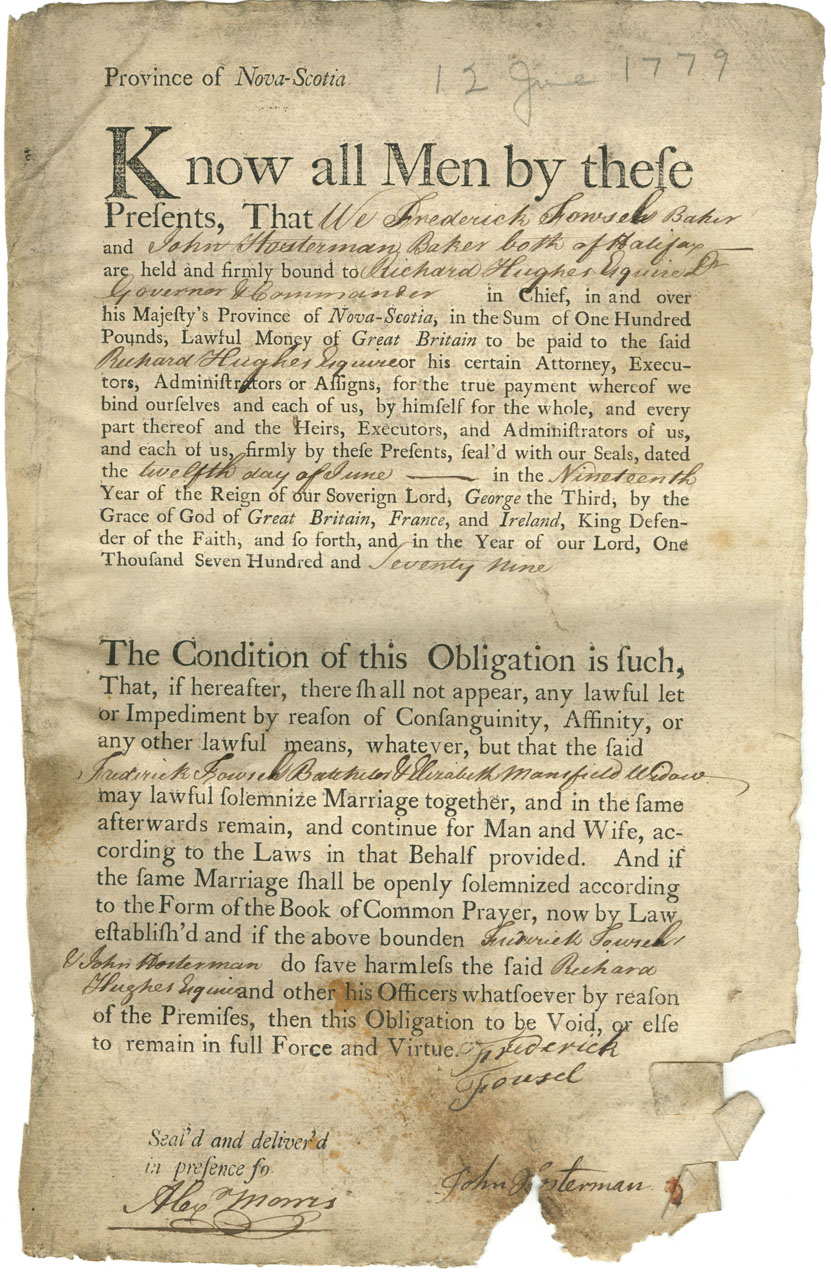 Province of Nova-Scotia
12 June 1779
Know all Men by theſe
Preſents, That We Frederick Fowsels Baker
and John Hosterman Baker both of Halifax
are held and firmly bound to Richard Hughes Esquire Lt
Governor & Commander in Chief, in and over
his Majeſty's Province of Nova-Scotia, in the Sum of One Hundred
Pounds, Lawful Money of Great Britain to be paid to the ſaid
Richard Hughes Esquire or his certain Attorney, Execu-
tors, Adminiſtrators or Aſſigns, for the true payment whereof we
bind ourſelves and each of us, by himſelf for the whole, and every
part thereof and the Heirs, Executors, and Adminiſtrators of us,
and each of us, firmly by theſe Preſents, ſeal'd with our Seals, dated
the twelfth day of June — in the Nineteenth
Year of the Reign of our Soverign Lord, George the Third, by the
Grace of God of Great Britain, France, and Ireland, King Defen-
der of the Faith, and ſo forth, and in the Year of our Lord, One
Thouſand Seven Hundred and Seventy Nine
The Condition of this Obligation is ſuch,
That, if hereafter, there ſhall not appear, any lawful let
or Impediment by reaſon of Conſanguinity, Affinity, or
any other lawful means, whatever, but that the ſaid
Frederick Fowsels Batchelor & Elizabeth Mansfield Widow
may lawful ſolemnize Marriage together, and in the ſame
afterwards remain, and continue for Man and Wife, ac-
cording to the Laws in that Behalf provided. And if
the ſame Marriage ſhall be openly ſolemnized according
to the Form of the Book of Common Prayer, now by Law
eſtabliſh'd and if the above bounden Frederick Fowsels
& John Hosterman do ſave harmleſs the ſaid Richard
Hughes Esquire and other his Officers whatſoever by reaſon
of the Premiſes, then this Obligation to be Void, or elſe
to remain in full Force and Virtue.
Frederick
Fousel
Seal'd and deliver'd
in preſence ſo
Alexr Morris
John Hosterman